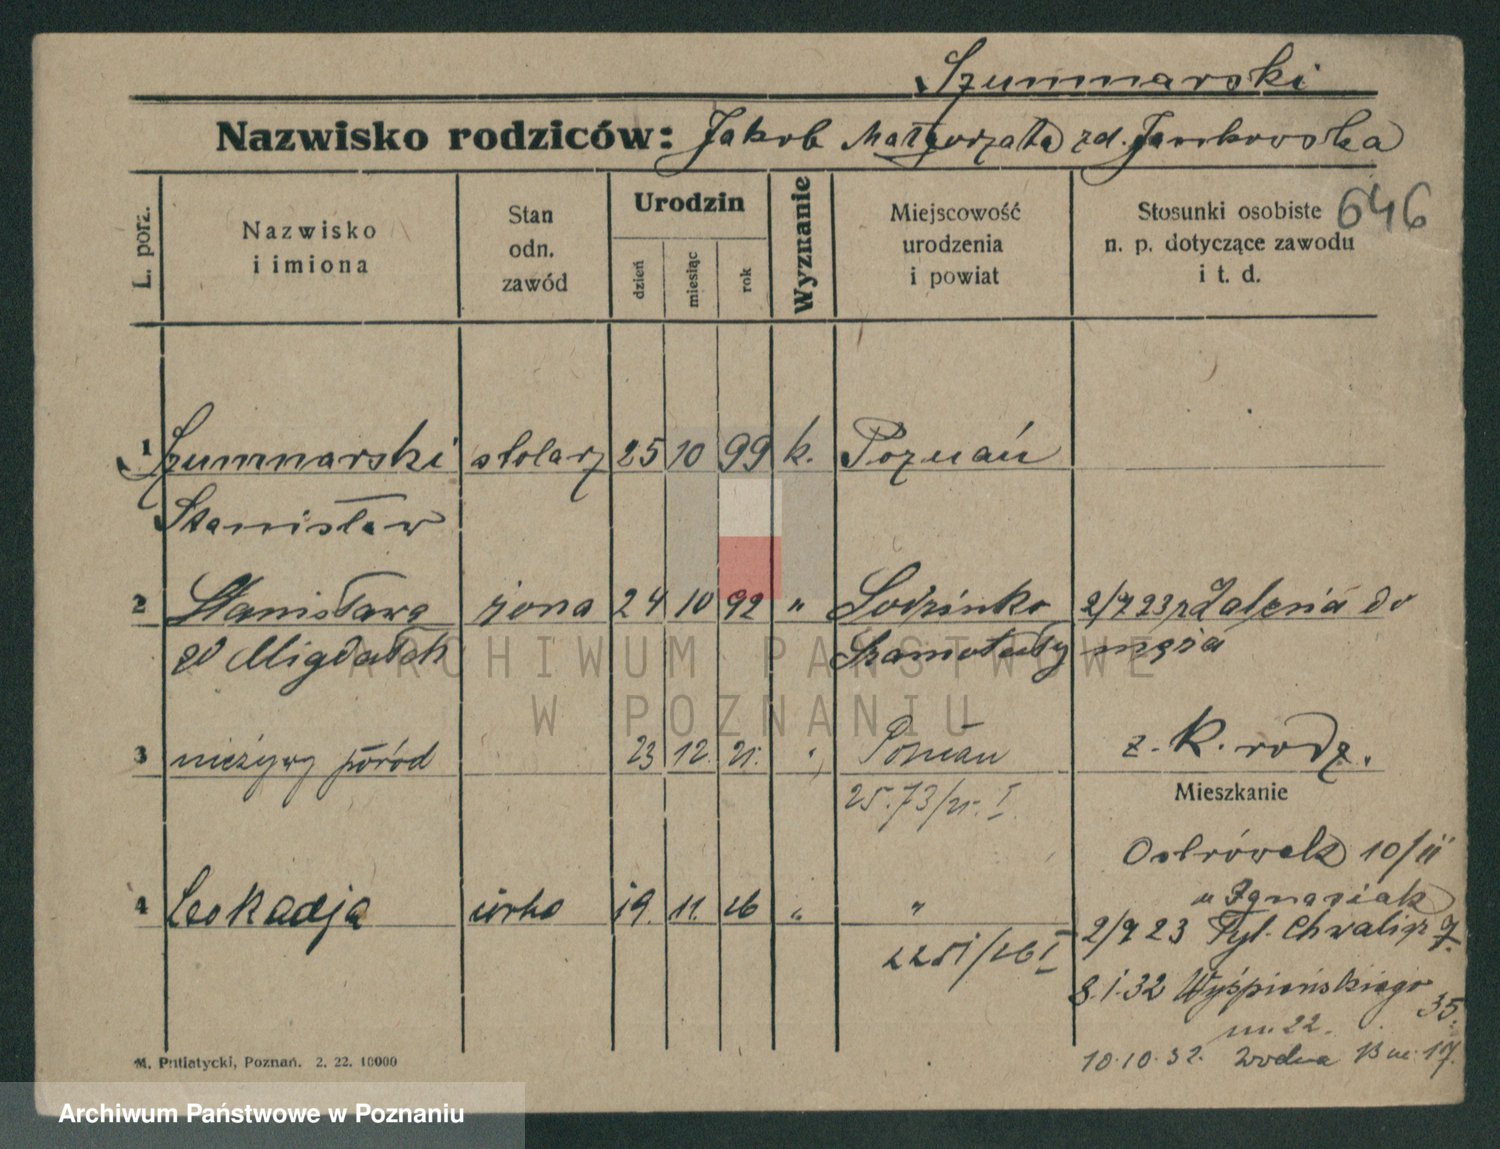 Szummarski
Nazwisko rodziców: Jakób Małgorzata zd. Jankowska
646
L. porz.
Nazwisko
i imiona
Stan
odn.
zawód
Urodzin
dzień
miesiąc
rok
Wyznanie
Miejscowość
urodzenia
i powiat
Stosunki osobiste
n. p. dotyczące zawodu
i t. d.
1 Szummarski stolarz 25 10 99 k. Poznań
Stanisław
2 Stanisława żona 24 10 92 " 2/7 23 z Zalesia do
zd Migdałek Szamotuły męża
3 nieżywy poród 23 12. 21. " Poznań z. K. rodz.
25.73/21. I.
Mieszkanie
Ostrówek 10/II
u Ignasiak
4 Leokadja córka 19. 11. 26 " "
2251/26 I
2/7 23 Chwalisz 7.
8.1.32 Wyśpiańskiego 35.
m. 22.
10.10.32. Wodna 13 m. 17.
M. Putiatycki, Poznań. 2. 22. 10000
ARCHIWUM PAŃSTWOWE
W POZNANIU
Archiwum Państwowe w Poznaniu